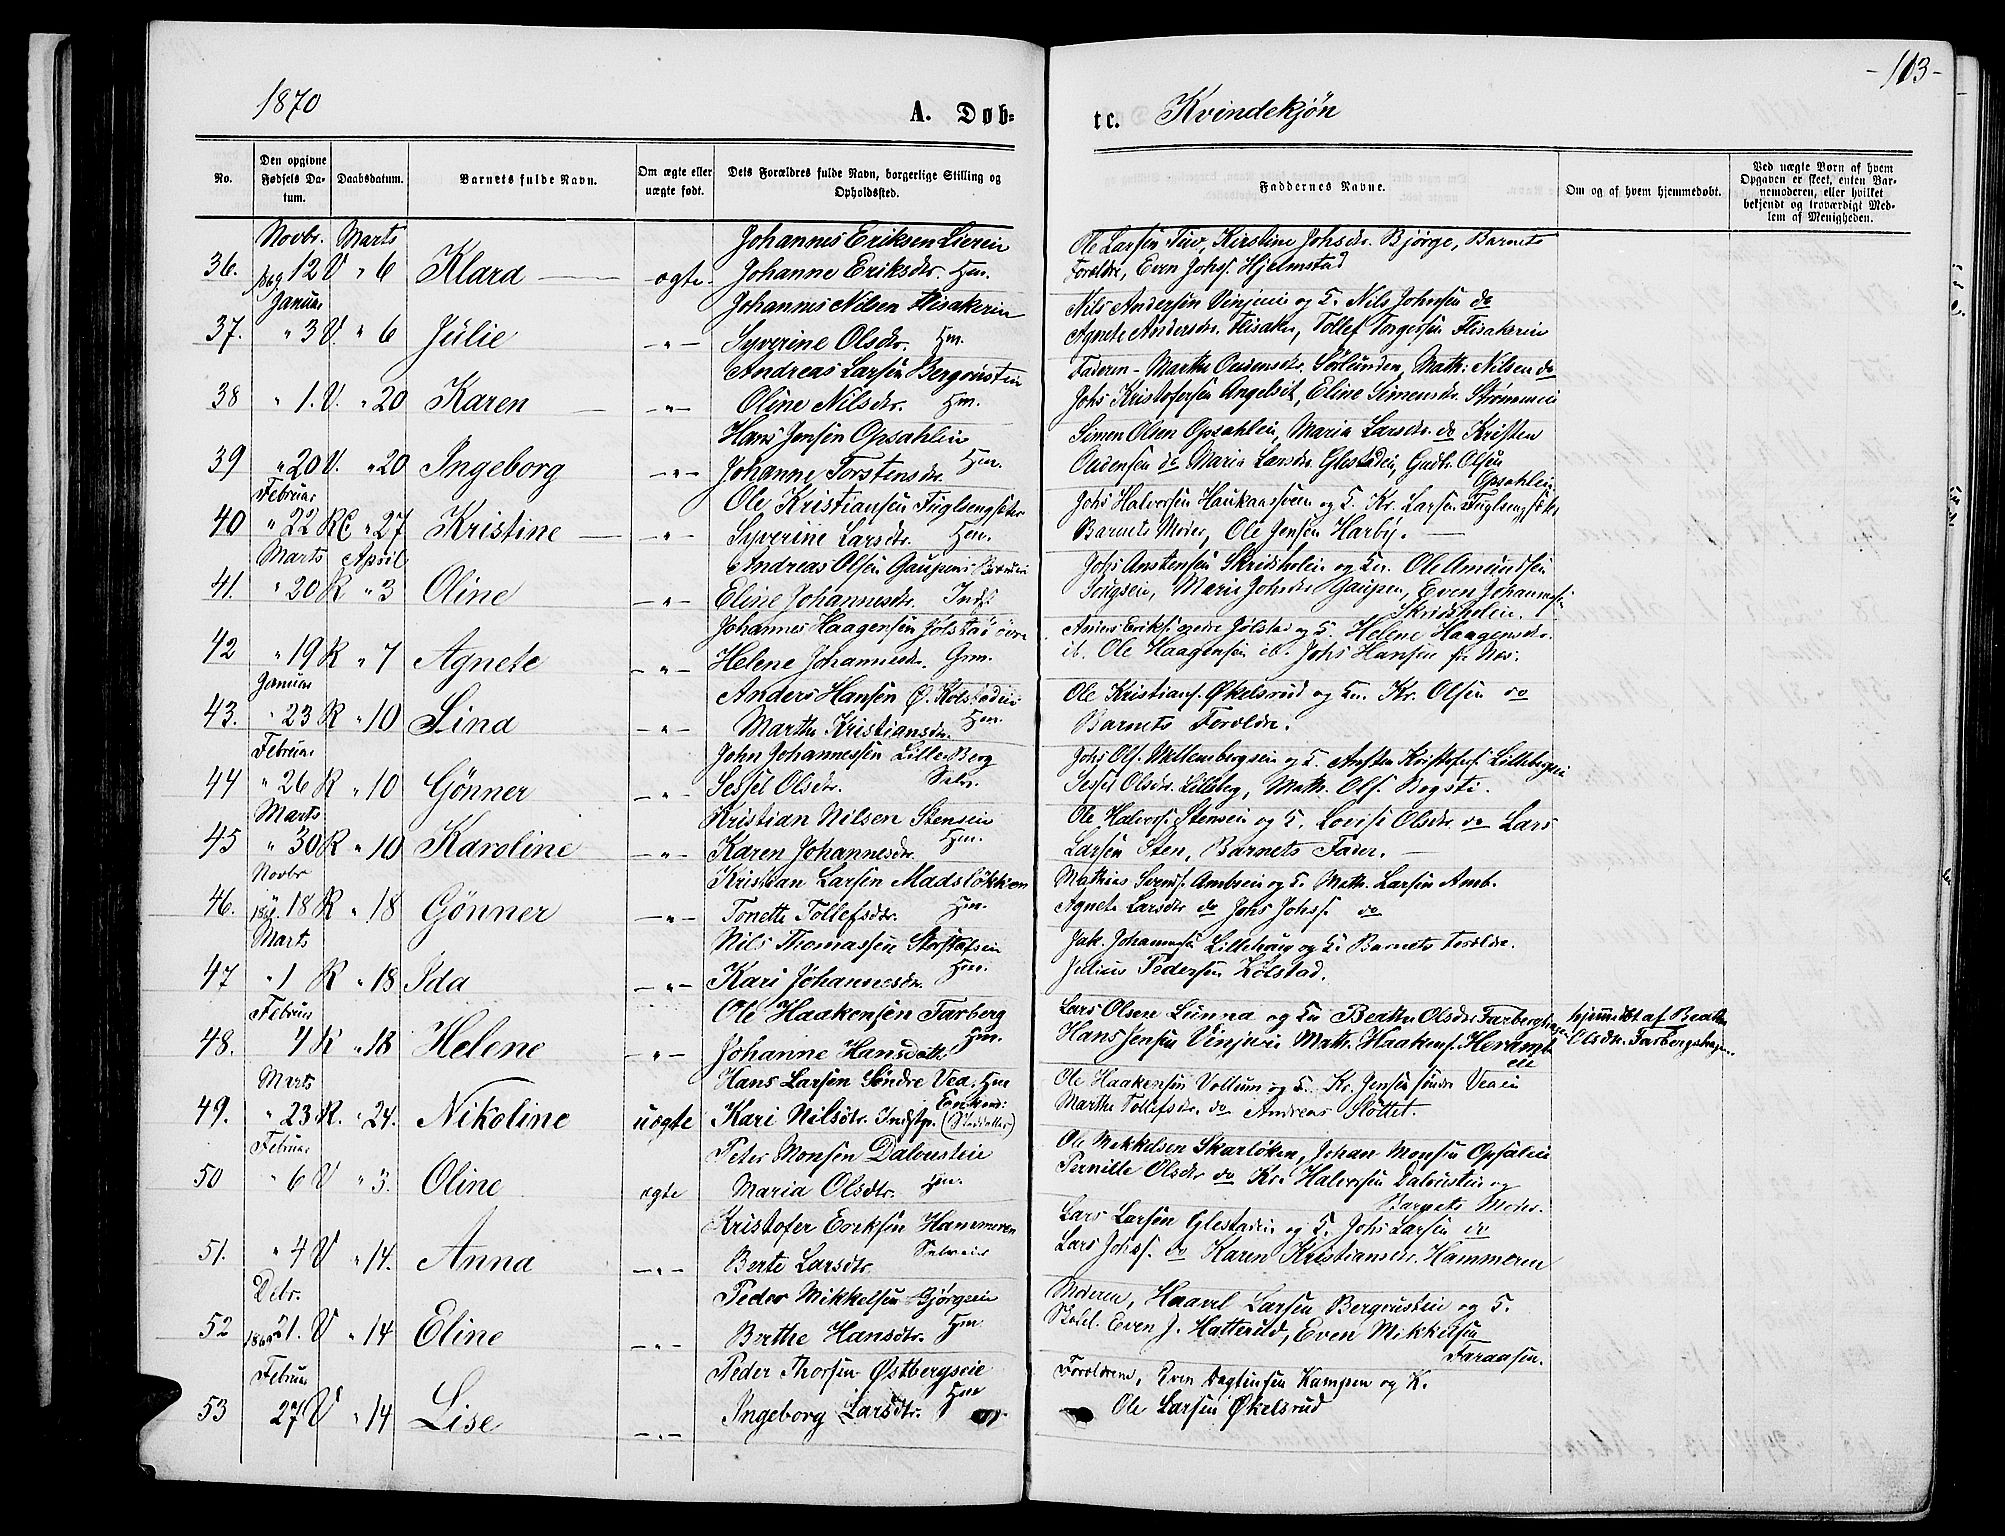 1870
A. Døb=
te.
Kvindekjøn
-113-
No.
Den opgivne Fødsels Datum.
Daabsdatum.
Barnets fulde Navn.
Om ægte eller uægte født.
Dets Forældres fulde Navn, borgerlige Stilling og Opholdssted.
Faddernes Navne.
Om og af hvem hjemmedøbt.
Ved uægte Børn af hvem Opgaven er skeet, enten Barnemoderen, eller hvilket bekjendt og troværdigt Medlem af Menigheden.
Novbr. Marts Johannes Eriksen Lierein Ole Larsen Tuv, Kirstine Johsdr. Bjørge, Barnets
36. 1869 12 V " 6 Klara ægte Johanne Eriksdr. Hm. Forældre, Even Johs. Hjelmstad
Januar Johannes Nilsen Flisakerin Nils Andersen Vinjuie og K. Nils Johnsen do
37. " 3 V. " 6 Julie -"- Syverine Olsdr. Hm. Agnete Andersdr. Flisaker, Tollef Torgersen Flisakerin
Andreas Larsen Bergrusten Faderen - Marthe Oudensdr. Sørlunden, Math: Nilsen do
38 " 1. V. " 20 Karen -"- Oline Nilsdr. Hm. Johs Kristofersen Angelsit, Eline Simensdr. Strømmen
Hans Jensen Opsahlein Simen Olsen Opsahlein, Maria Larsdr. do Kristen
39 " 20 V. " 20 Ingeborg -"- Johanne Torstensdr. Hm. Oudensen do Maria Larsdr. Glestadein, Gudbr. Olsen
Opsahlein
Februar Ole Kristiansen Fuglsengseter Johs Halversen Haukaassveen og K. Kr. Larsen Fuglsengseter
40 " 22 R " 27 Kristine -"- Syverine Larsdr. Hm. Barnets Moder, Ole Jensen Harby.
Marts April Andreas Olsen Gaupen Johs Anstensen Skridsholen og Ku. Ole Amundsen
41. " 20 R " 3 Oline -"- Eline Johannesdr. Inds. Marie Johsdr. Gaupen, Even Johannesen
Skridsholen.
Johannes Haagensen Jølstad øvre Anders Eriks. nedre Jølstad og K. Helene Haagensdr.
42 " 19 R " 7 Agnete -"- Helene Johannesdr. Grm. ib. Ole Haagensen ib. Johs Hansen
Januar Anders Hansen Ø. Kolstadeie Ole Kristians. Økelsrud og Ku. Kr. Olsen do
43. " 23 R " 10 Lina -"- Marthe Kristiansdr. Hm. Barnets Forældre.
Februar John Johannessen Lille-Berg Johs Ols. Mellembergseie og K. Ansten Kristofers. Lillebergseie
44 " 26 R " 10 Gønner -"- Sessel Olsdtr. Selv. Sessel Olsdr. Lilleberg, Math. Ols. Rogsti.
Marts Kristian Nilsen Stenseie Ole Halvors. Stenseie og K. Lovise Olsdr. do Lars
45 " 30 R " 10 Karoline -"- Karen Johannesdr. Hm. Larsen Sten, Barnets Fader.
Novbr Kristian Larsen Madsløkken Mathias Svends. Ambseie og K. Math. Larsen Amb.
46. 1869 18 R " 18 Gønner -"- Tonette Tollefsdr. Hm. Agnete Larsdtr do Johs Johs. do
Marts Nils Thomassen Storstafseie Jak. Johannesen Lillehaug og Ku Barnets Forældre.
47 " 1 R " 18 Ida -"- Kari Johannesdr. Hm. Julius Pedersen Kolstad.
Februar Ole Haakensen Farberg Lars Olsen Lunna og Ku Beathe Olsdr. Farbergshagen hjemmedøbt af Beathe
48. 4 R " 18 Helene -"- Johanne Hansdatter Hm. Hans Jensen Vinjuie Math. Haakens. Heramb Olsdr. Farbergshagen.
eie
Marts Hans Larsen Søndre Vea. Hm Ole Haakensen Vollum og K. Kr. Jensen søndre Veaeie
49. " 23 R. " 24. Nikoline uægte Kari Nilsdtr. Indstp. Enkem: Marthe Tollefsdr. do Andreas Slottet.
Februar Peter Monsen Dalbusteie Ole Mikkelsen Skarløken, Johan Monsen Opsaleie
50 " 6 V " 3. Oline ægte Maria Olsdtr. Hm. Pernille Olsdtr do Kr. Halversen Dalbusteie og
Barnets Moder.
Kristofer Eriksen Hammeren Lars Larsen Glestadeie og K. Johs Larsen do
51. " 4 V " 14. Anna -"- Berte Larsdtr. Selveier Lars Johs. do Karen Kristiansdr. Hammeren
Debr. Peder Mikkelsen Gjørgseie Moderen, Haavel Larsen Bergrusteie og K.
52 1869 21. V " 14 Eline -"- Berthe Hansdtr. Hm. Even J. Hatterud, Even Mikkelsen
Faraasen.
Februar Peder Thorsen Østbergseie Forældrene, Even Dagfinsen Kampen og K.
53 27 V " 14 Lise -"- Ingeborg Larsdtr. Hm Ole Larsen Økelsrud